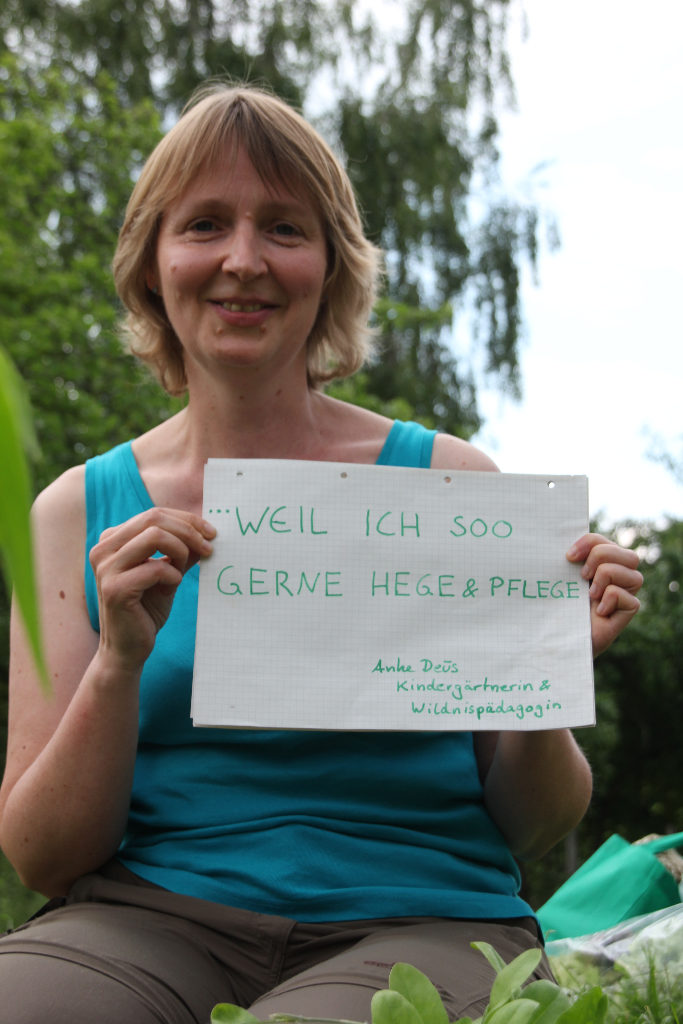 ...WEIL ICH SOO
GERNE HEGE & PFLEGE
Anke Deūs
Kindergärtnerin &
Wildnispädagogin